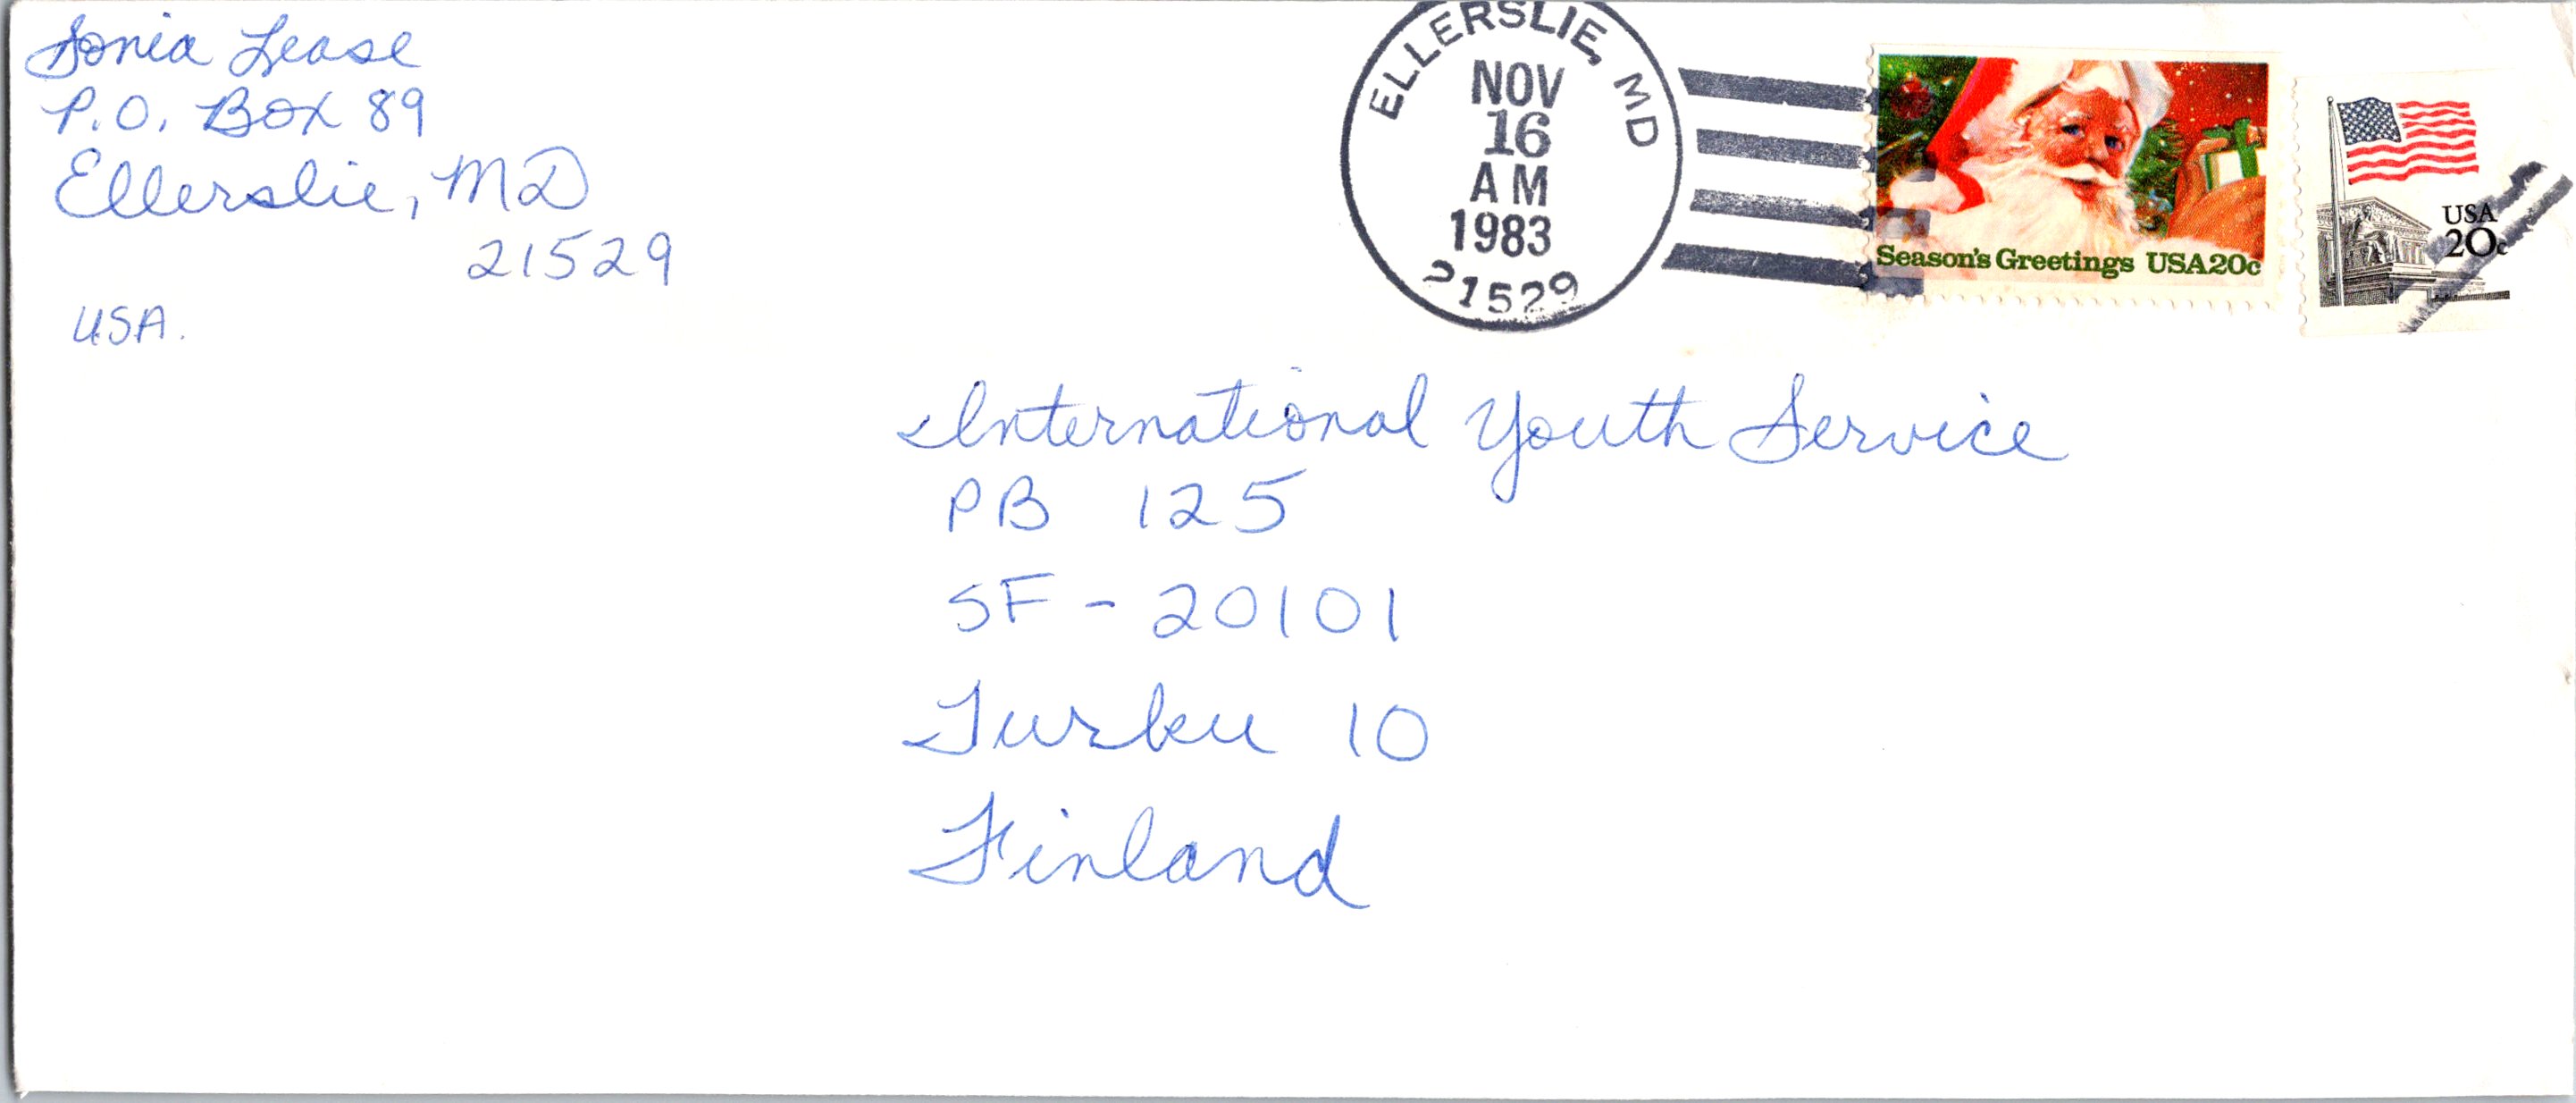 Sonia Lease
P.O. Box 89
Ellerslie, MD
21529
USA.
ELLERSLIE, MD
NOV
16
AM
1983
21529
Season's Greetings USA20c
USA
20c
International Youth Service
PB 125
SF - 20101
Turku 10
Finland